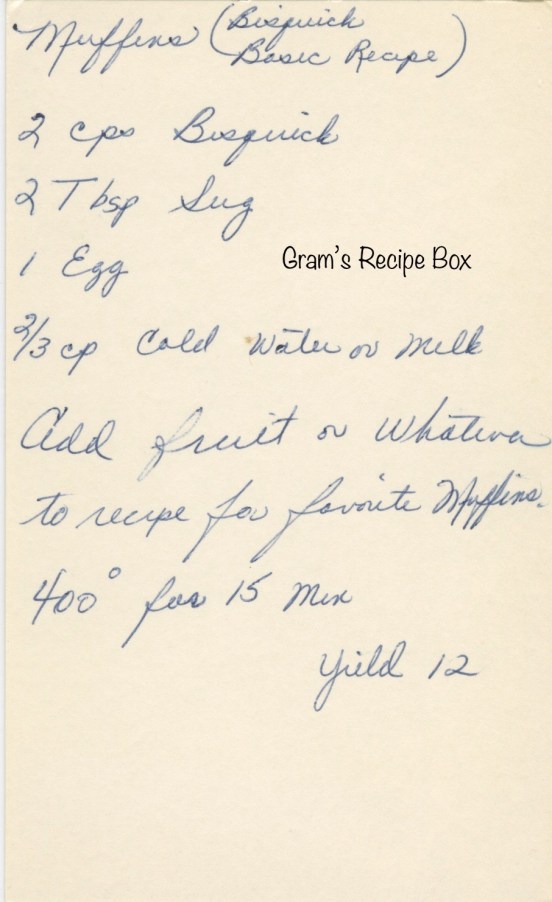 Muffins (Bisquick
Basic Recipe)
2 cps Bisquick
2 Tbsp Sug
1 Egg
Gram's Recipe Box
2/3 cp Cold Water or Milk
Add fruit or whatever
to recipe for favorite Muffins.
400° for 15 Min
Yield 12